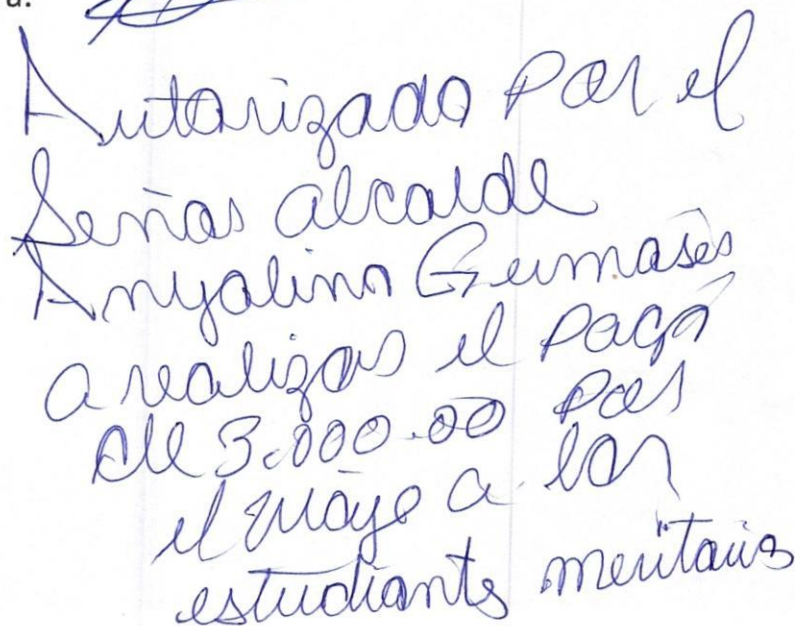 a:
Autorizado por el
Señor alcalde
Anyolino Germosen
a realizar el pago
de 3.000.00 por
el viaje a los
estudiants meritorios